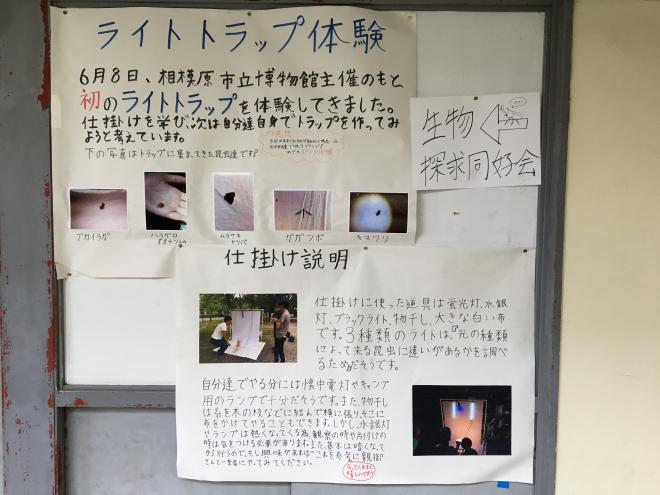 ライトトラップ体験
6月8日、相模原市立博物館主催のもと、
初のライトトラップを体験してきました。
仕掛けを学び、次は自分達自身でトラップを作ってみ
ようと考えています。
下の写真はトラップに集まってきた昆虫達です
アカイラガ
ハラグロ
オオテントウ
ムラサキ
ガガンボ
キマワリ
生物
探求同好会
仕掛け説明
仕掛けに使った道具は蛍光灯、水銀
灯、ブラックライト、物干し、大きな白い布
です。3種類のライトは、光の種類
によって来る昆虫に違いがあるかを調べ
るためだそうです。
自分達でやる分には懐中電灯やキャンプ
用のランプで十分だそうです。また、物干し
は布を木の枝などに結んで横に張り、そこに
布をかけてやることもできます。しかし、水銀灯
やランプは熱くなってくる為、観察の時や片付けの
時は気をつける必要があります。また、基本は暗くなって
から行うので、もし興味があればこれを参考に親御
さんと一緒にやってみてください。